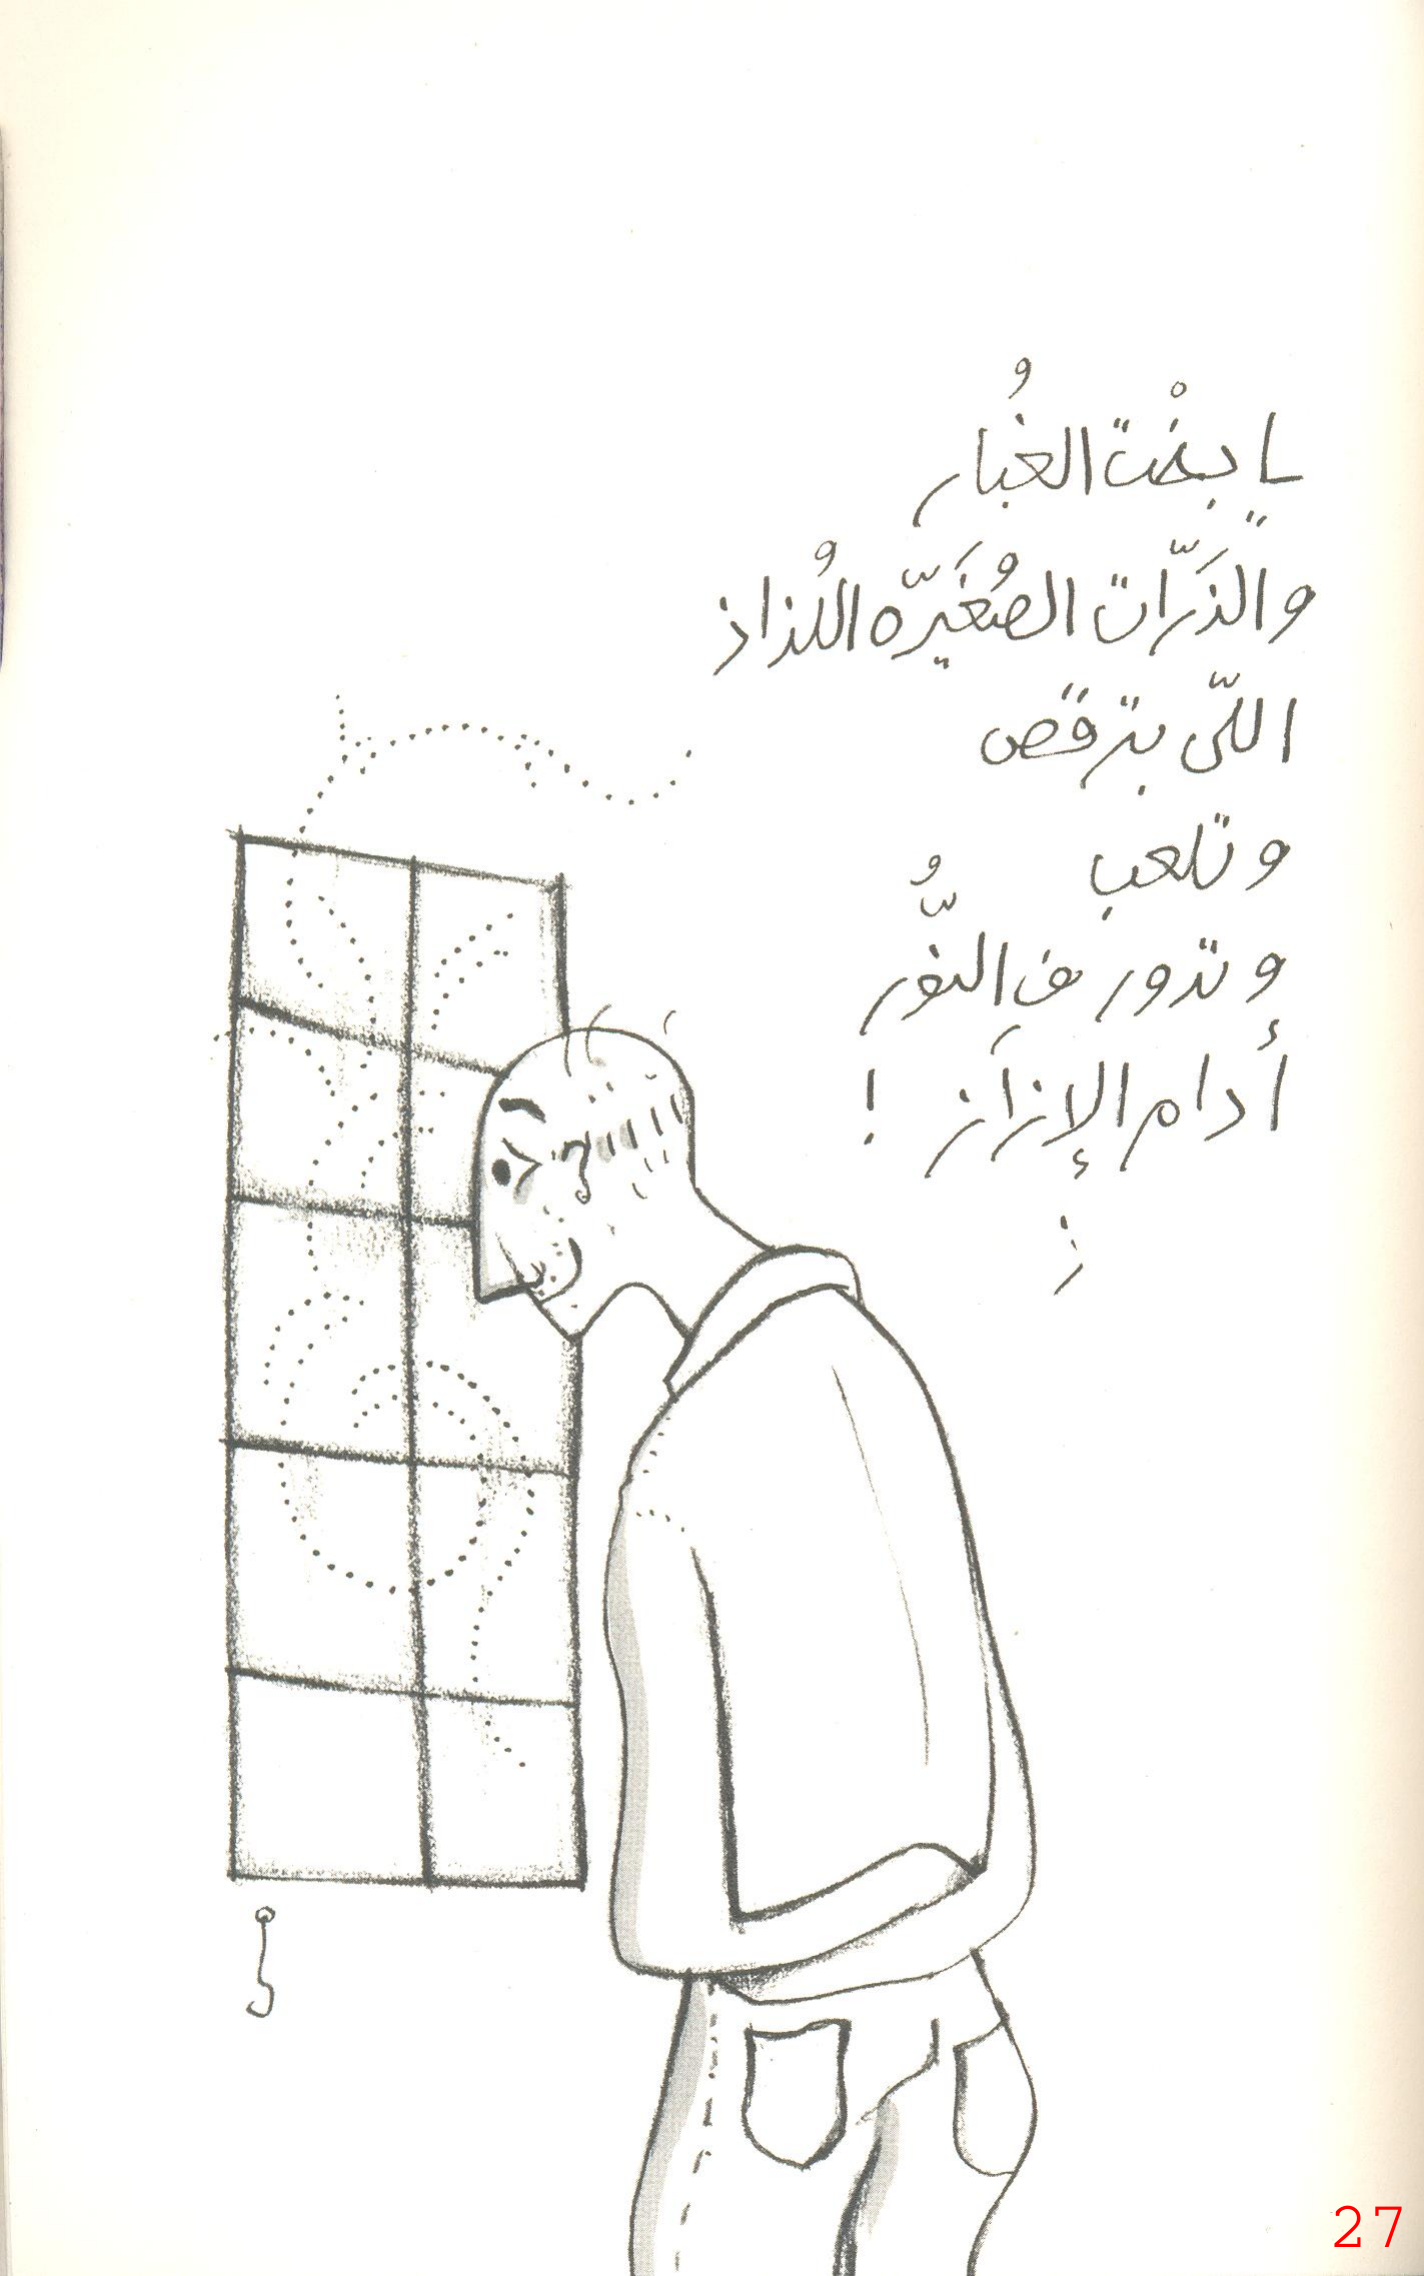 يا بخْت الغُبار
والذَرّات الصُغَيرّه اللُذاذ
اللّى بترقص
وتلعب
وتدور ف النُّور
أدام الإزاَز !
27